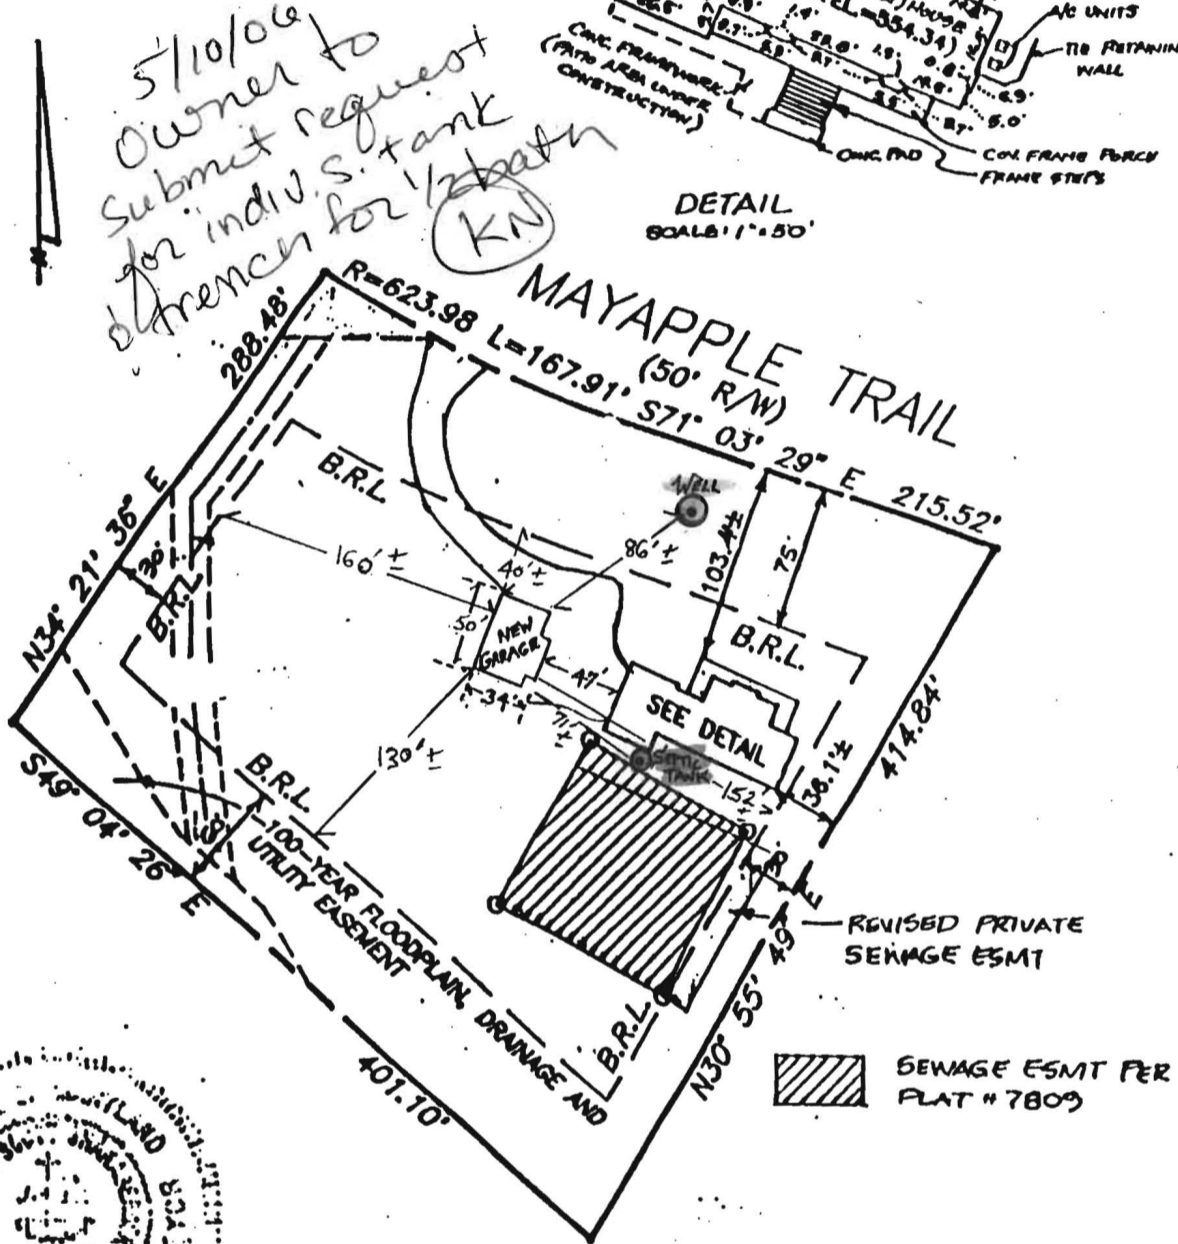 5/10/06
Owner to
submit request
for indiv. S. tank
& trench for 1/2 bath
KN
HOUSE
EL=554.34)
A/C UNITS
TIE RETAINING
WALL
CONC. FRAMEWORK
(PATIO AREA UNDER
CONSTRUCTION)
CONC. PAD
COV. FRAME PORCH
FRAME STEPS
5.0'
DETAIL
SCALE: 1"=50'
MAYAPPLE TRAIL
(50' R/W)
R=623.98 L=167.91' S71° 03' 29" E 215.52'
288.48'
N34° 21' 36" E
30'
B.R.L.
B.R.L
WELL
86'±
103.4'±
75'
B.R.L.
160'±
40'±
50'
NEW
GARAGE
34'
47'
71'±
SEE DETAIL
SEPTIC
TANK
152'±
38.1'±
414.84'
130'±
B.R.L.
100-YEAR FLOODPLAIN, DRAINAGE AND
UTILITY EASEMENT
S49° 04' 26" E
401.10'
B.R.L.
N30° 55' 49" E
REVISED PRIVATE
SEWAGE ESMT
SEWAGE ESMT PER
PLAT # 7809